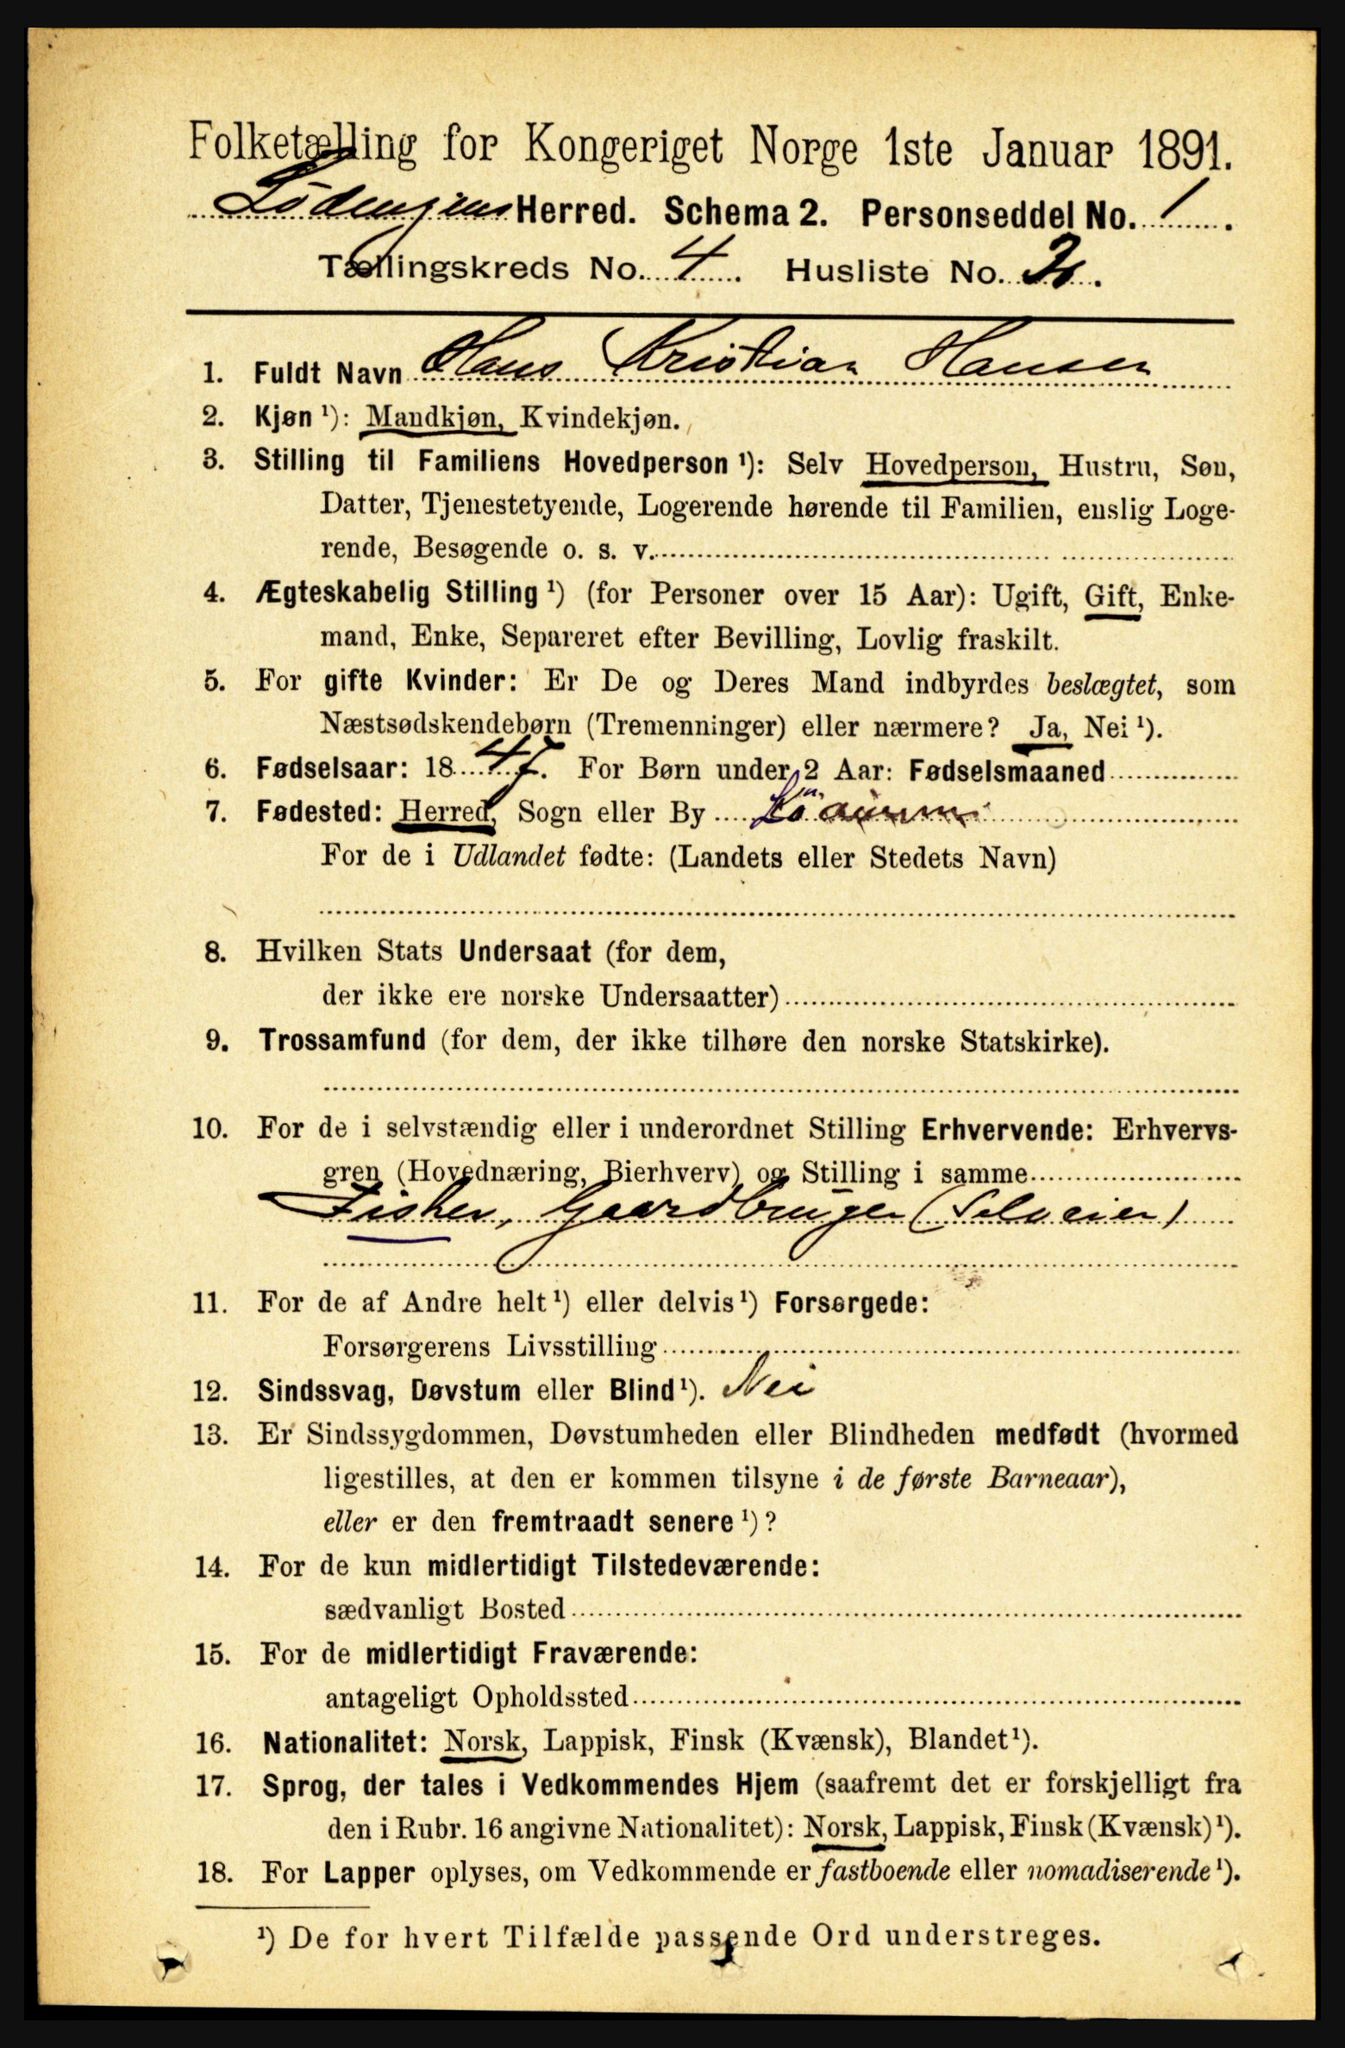 Folketælling for Kongeriget Norge 1ste Januar 1891.
Lødingens Herred. Schema 2. Personseddel No. 1.
Tællingskreds No. 4. Husliste No. 2.
1. Fuldt Navn Hans Kristian Hansen
2. Kjøn ¹): Mandkjøn, Kvindekjøn.
3. Stilling til Familiens Hovedperson ¹): Selv Hovedperson, Hustru, Søn,
Datter, Tjenestetyende, Logerende hørende til Familien, enslig Loge-
rende, Besøgende o. s. v.
4. Ægteskabelig Stilling ¹) (for Personer over 15 Aar): Ugift, Gift, Enke-
mand, Enke, Separeret efter Bevilling, Lovlig fraskilt.
5. For gifte Kvinder: Er De og Deres Mand indbyrdes beslægtet, som
Næstsødskendebørn (Tremenninger) eller nærmere? Ja, Nei ¹).
6. Fødselsaar: 1847. For Børn under 2 Aar: Fødselsmaaned
7. Fødested: Herred, Sogn eller By
For de i Udlandet fødte: (Landets eller Stedets Navn)
8. Hvilken Stats Undersaat (for dem,
der ikke ere norske Undersaatter)
9. Trossamfund (for dem, der ikke tilhøre den norske Statskirke).
10. For de i selvstændig eller i underordnet Stilling Erhvervende: Erhvervs-
gren (Hovednæring, Bierhverv) og Stilling i samme
Fisker, Gaardbruger (Selveier)
11. For de af Andre helt ¹) eller delvis ¹) Forsørgede:
Forsørgerens Livsstilling
12. Sindssvag, Døvstum eller Blind ¹). Nei
13. Er Sindssygdommen, Døvstumheden eller Blindheden medfødt (hvormed
ligestilles, at den er kommen tilsyne i de første Barneaar),
eller er den fremtraadt senere ¹)?
14. For de kun midlertidigt Tilstedeværende:
sædvanligt Bosted
15. For de midlertidigt Fraværende:
antageligt Opholdssted
16. Nationalitet: Norsk, Lappisk, Finsk (Kvænsk), Blandet ¹).
17. Sprog, der tales i Vedkommendes Hjem (saafremt det er forskjelligt fra
den i Rubr. 16 angivne Nationalitet): Norsk, Lappisk, Finsk (Kvænsk) ¹).
18. For Lapper oplyses, om Vedkommende er fastboende eller nomadiserende ¹).
¹) De for hvert Tilfælde passende Ord understreges.